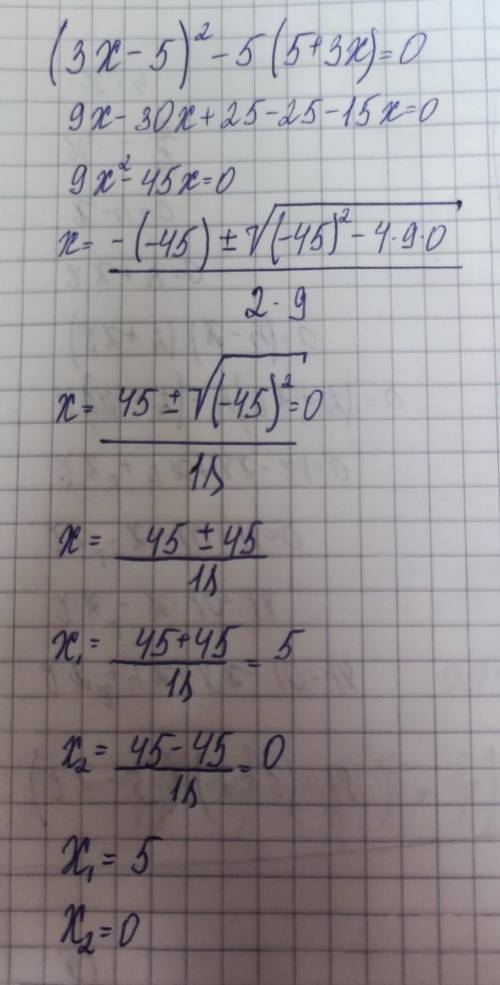 (3x-5)²-5(5+3x)=0
9x-30x+25-25-15x=0
9x²-45x=0
x= -(-45)±√(-45)²-4·9·0 / 2·9
x= 45±√(-45)²=0 / 18
x= 45±45 / 18
x₁= 45+45 / 18 = 5
x₂= 45-45 / 18 = 0
x₁=5
x₂=0